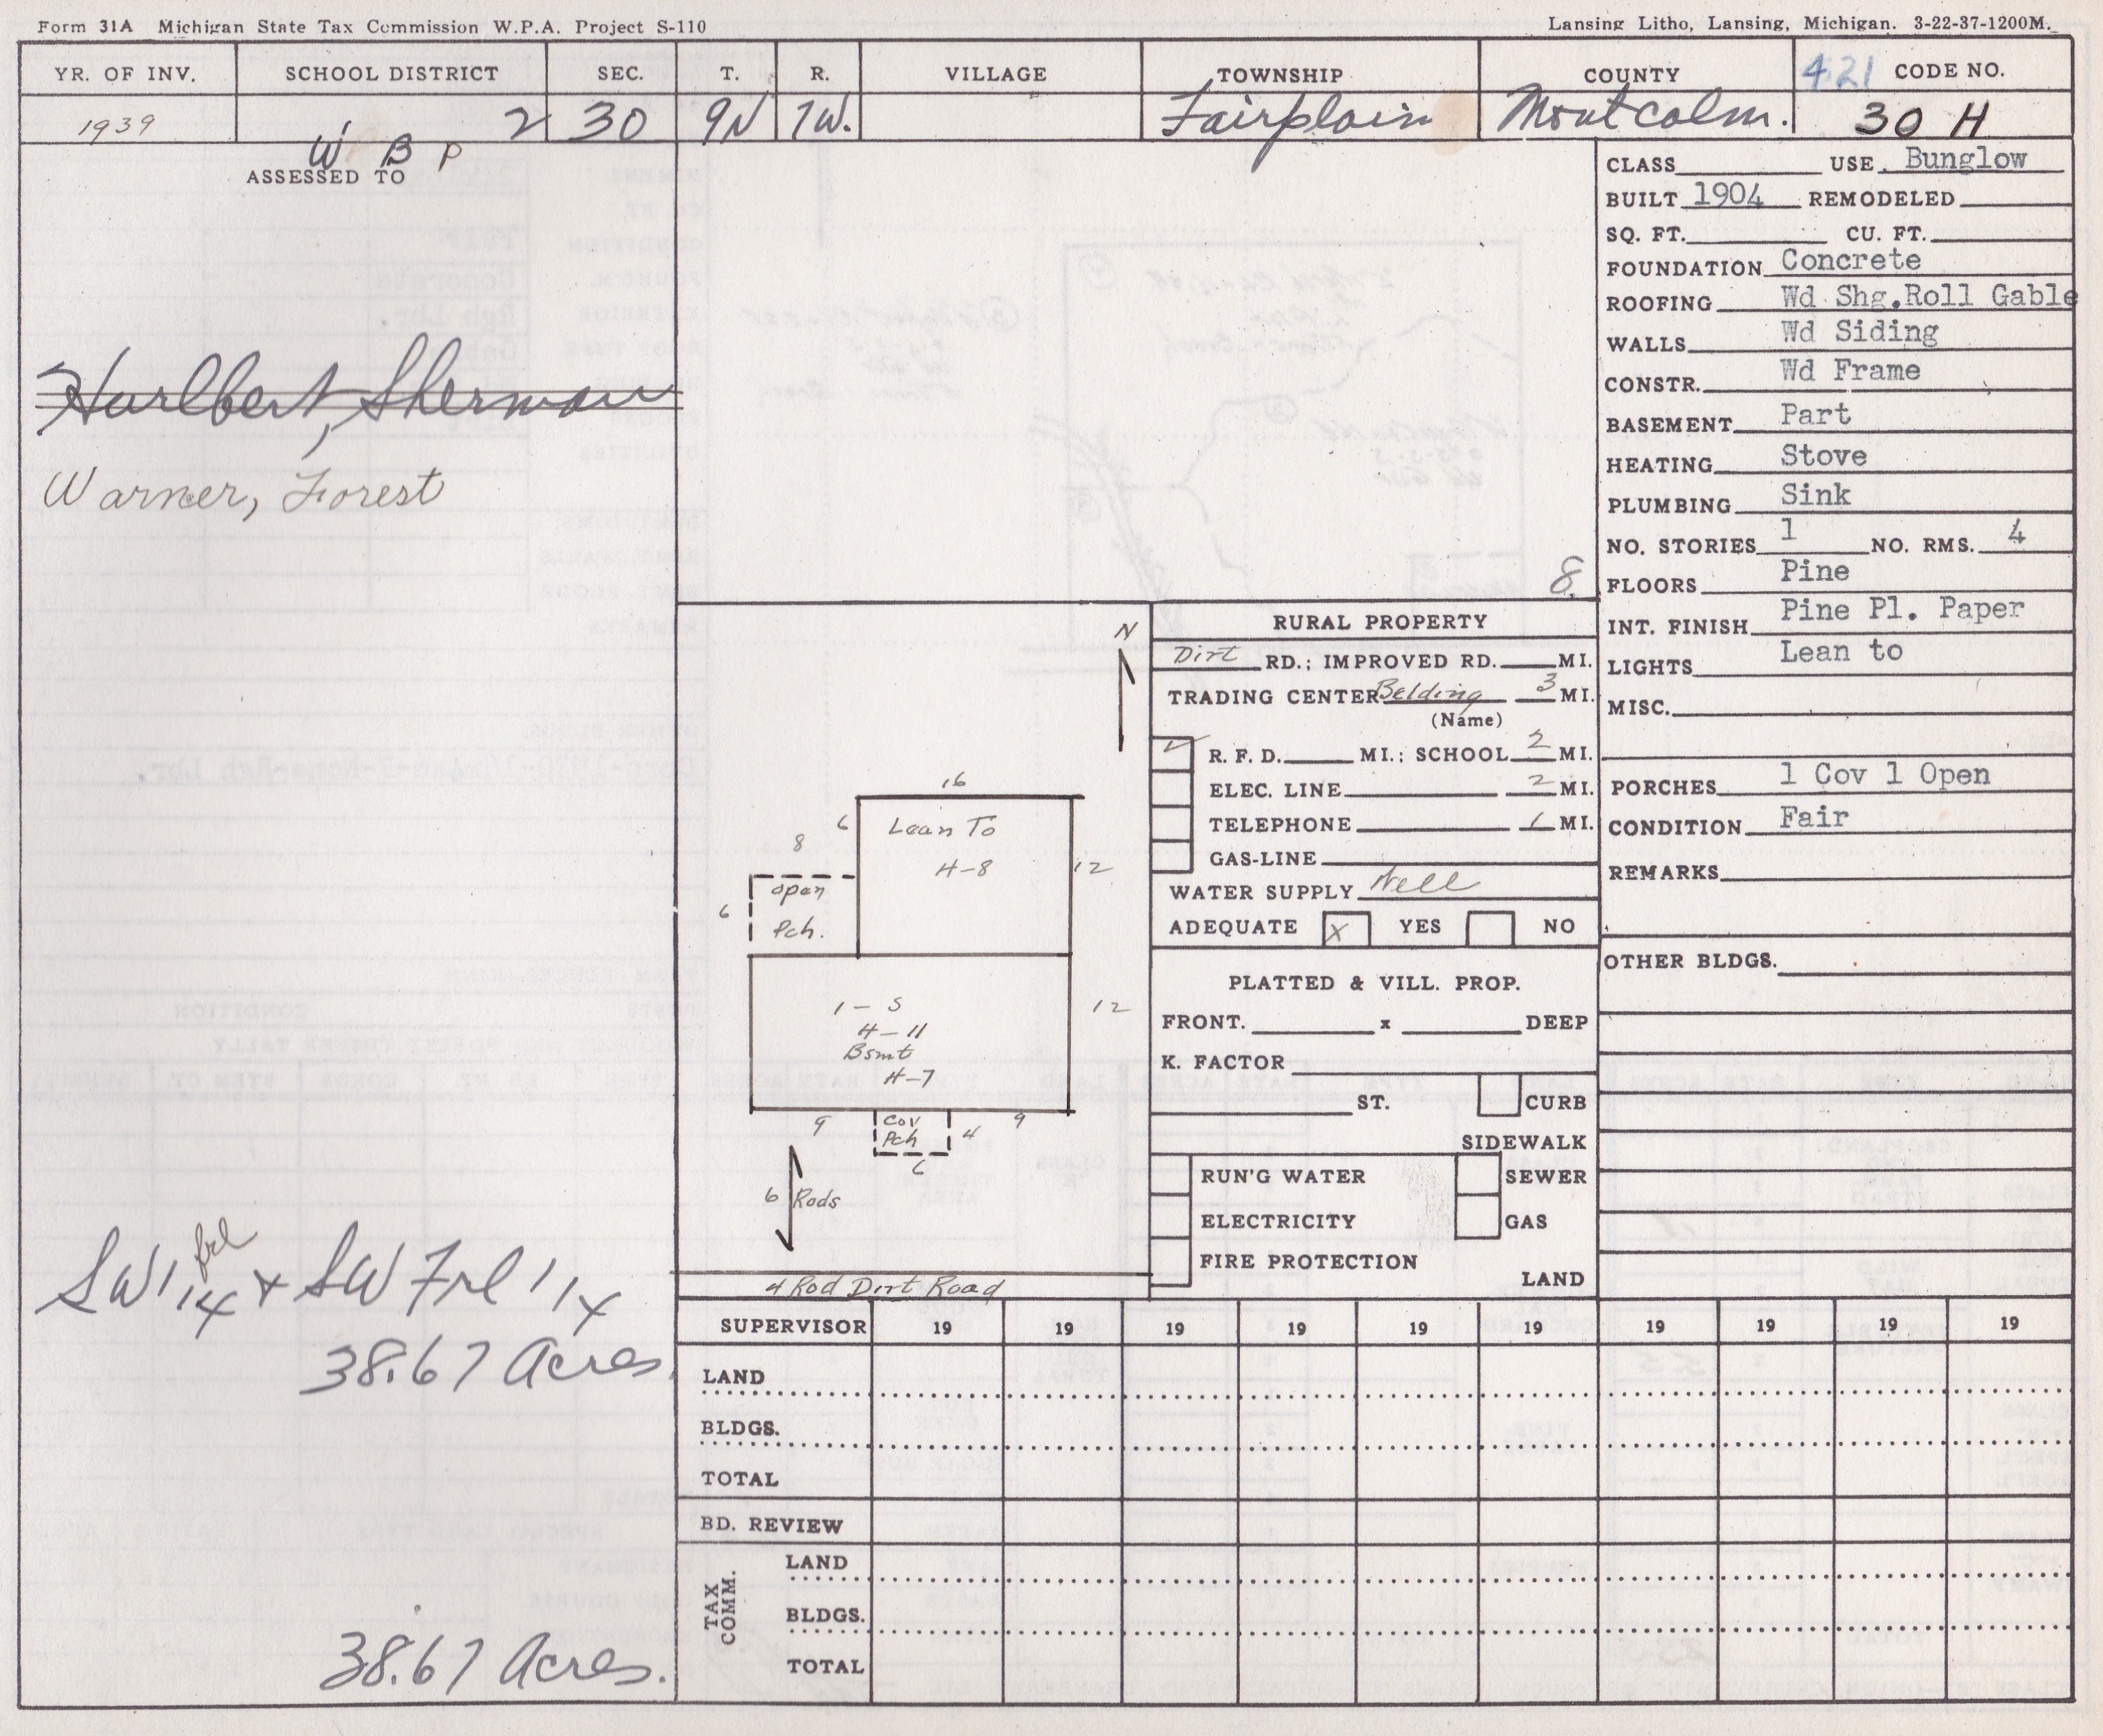 Form 31A Michigan State Tax Commission W.P.A. Project S-110
Lansing Litho, Lansing, Michigan. 3-22-37-1200M.
YR. OF INV. SCHOOL DISTRICT SEC. T. R. VILLAGE TOWNSHIP COUNTY 421 CODE NO.
1939 2 30 9N 7W. Fairplain Montcalm. 30 H
W B P
ASSESSED TO
Hurlbert, Sherman
Warner, Forest
SW frl 1/4 + SW Frl 1/4
38.67 Acres.
38.67 Acres.
8.
N
16
6 Lean To
H-8
12
8
open
6
Pch.
1 - S
H-11
Bsmt
H-7
12
9 Cov
Pch
4 9
6
6 Rods
4 Rod Dirt Road
RURAL PROPERTY
Dirt RD.; IMPROVED RD. MI.
TRADING CENTER Belding 3 MI.
(Name)
✓ R. F. D. MI.; SCHOOL 2 MI.
ELEC. LINE 2 MI.
TELEPHONE 1 MI.
GAS-LINE
WATER SUPPLY Well
ADEQUATE X YES NO
PLATTED & VILL. PROP.
FRONT. x DEEP
K. FACTOR
ST. CURB
SIDEWALK
RUN'G WATER SEWER
ELECTRICITY GAS
FIRE PROTECTION
LAND
CLASS USE Bunglow
BUILT 1904 REMODELED
SQ. FT. CU. FT.
FOUNDATION Concrete
ROOFING Wd Shg.Roll Gable
WALLS Wd Siding
CONSTR. Wd Frame
BASEMENT Part
HEATING Stove
PLUMBING Sink
NO. STORIES 1 NO. RMS. 4
FLOORS Pine
INT. FINISH Pine Pl. Paper
LIGHTS Lean to
MISC.
PORCHES 1 Cov 1 Open
CONDITION Fair
REMARKS
OTHER BLDGS.
SUPERVISOR 19 19 19 19 19 19 19 19 19 19
LAND
BLDGS.
TOTAL
BD. REVIEW
TAX COMM.
LAND
BLDGS.
TOTAL